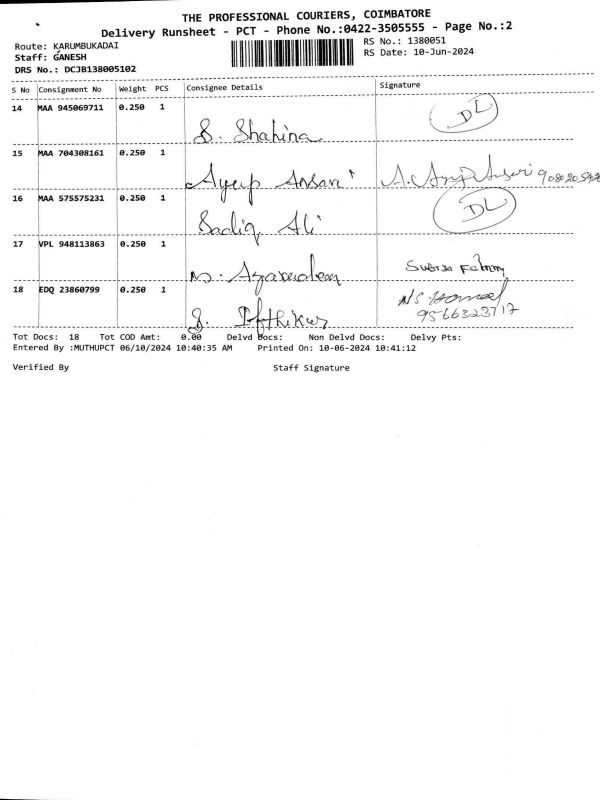 THE PROFESSIONAL COURIERS, COIMBATORE
Delivery Runsheet - PCT - Phone No.:0422-3505555 - Page No.:2
Route: KARUMBUKADAI
RS No.: 1380051
Staff: GANESH
RS Date: 10-Jun-2024
DRS No.: DCJB138005102
S No Consignment No Weight PCS Consignee Details Signature
14 MAA 945069711 0.250 1
S. Shahina DL
15 MAA 704308161 0.250 1
Ayup Ansari A. Ayup Ansari
16 MAA 575575231 0.250 1
Sadiq Ali DL
17 VPL 948113863 0.250 1
18 EDQ 23860799 0.250 1
9566323717
Tot Docs: 18 Tot COD Amt: 0.00 Delvd Docs: Non Delvd Docs: Delvy Pts:
Entered By :MUTHUPCT 06/10/2024 10:40:35 AM Printed On: 10-06-2024 10:41:12
Verified By Staff Signature